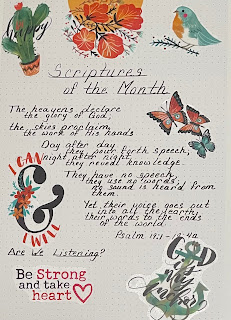 Scriptures
of the Month
The heavens declare
the glory of God;
the skies proclaim
the work of his hands
Day after day
they pour forth speech,
night after night
they reveal knowledge.
They have no speech,
they use no words;
no sound is heard from
them.
Yet their voice goes out
into all the earth,
their words to the ends
of the world.
Psalm 19:1-19:4a
Are We Listening?
I CAN
&
I WILL
Be Strong
and take
heart
GOD